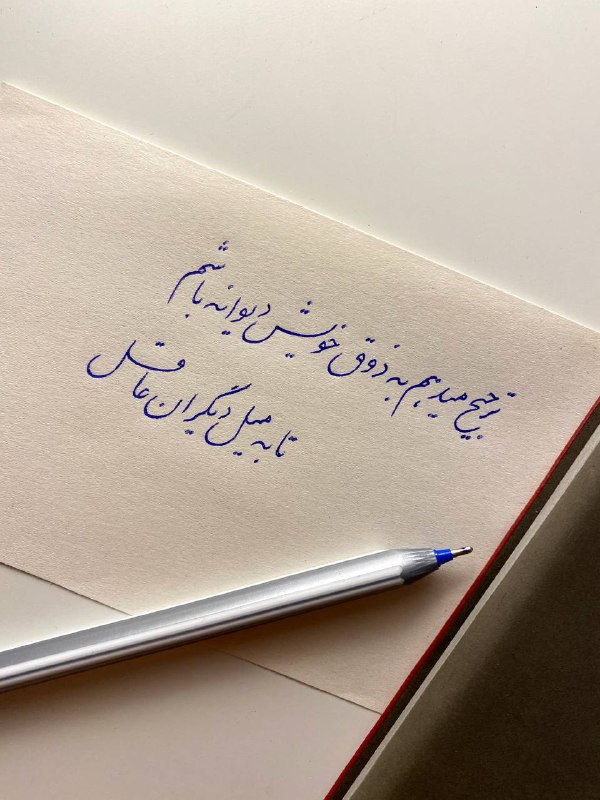 ترجیح میدهم به ذوق خویش دیوانه باشم
تا به میل دیگران عاقل